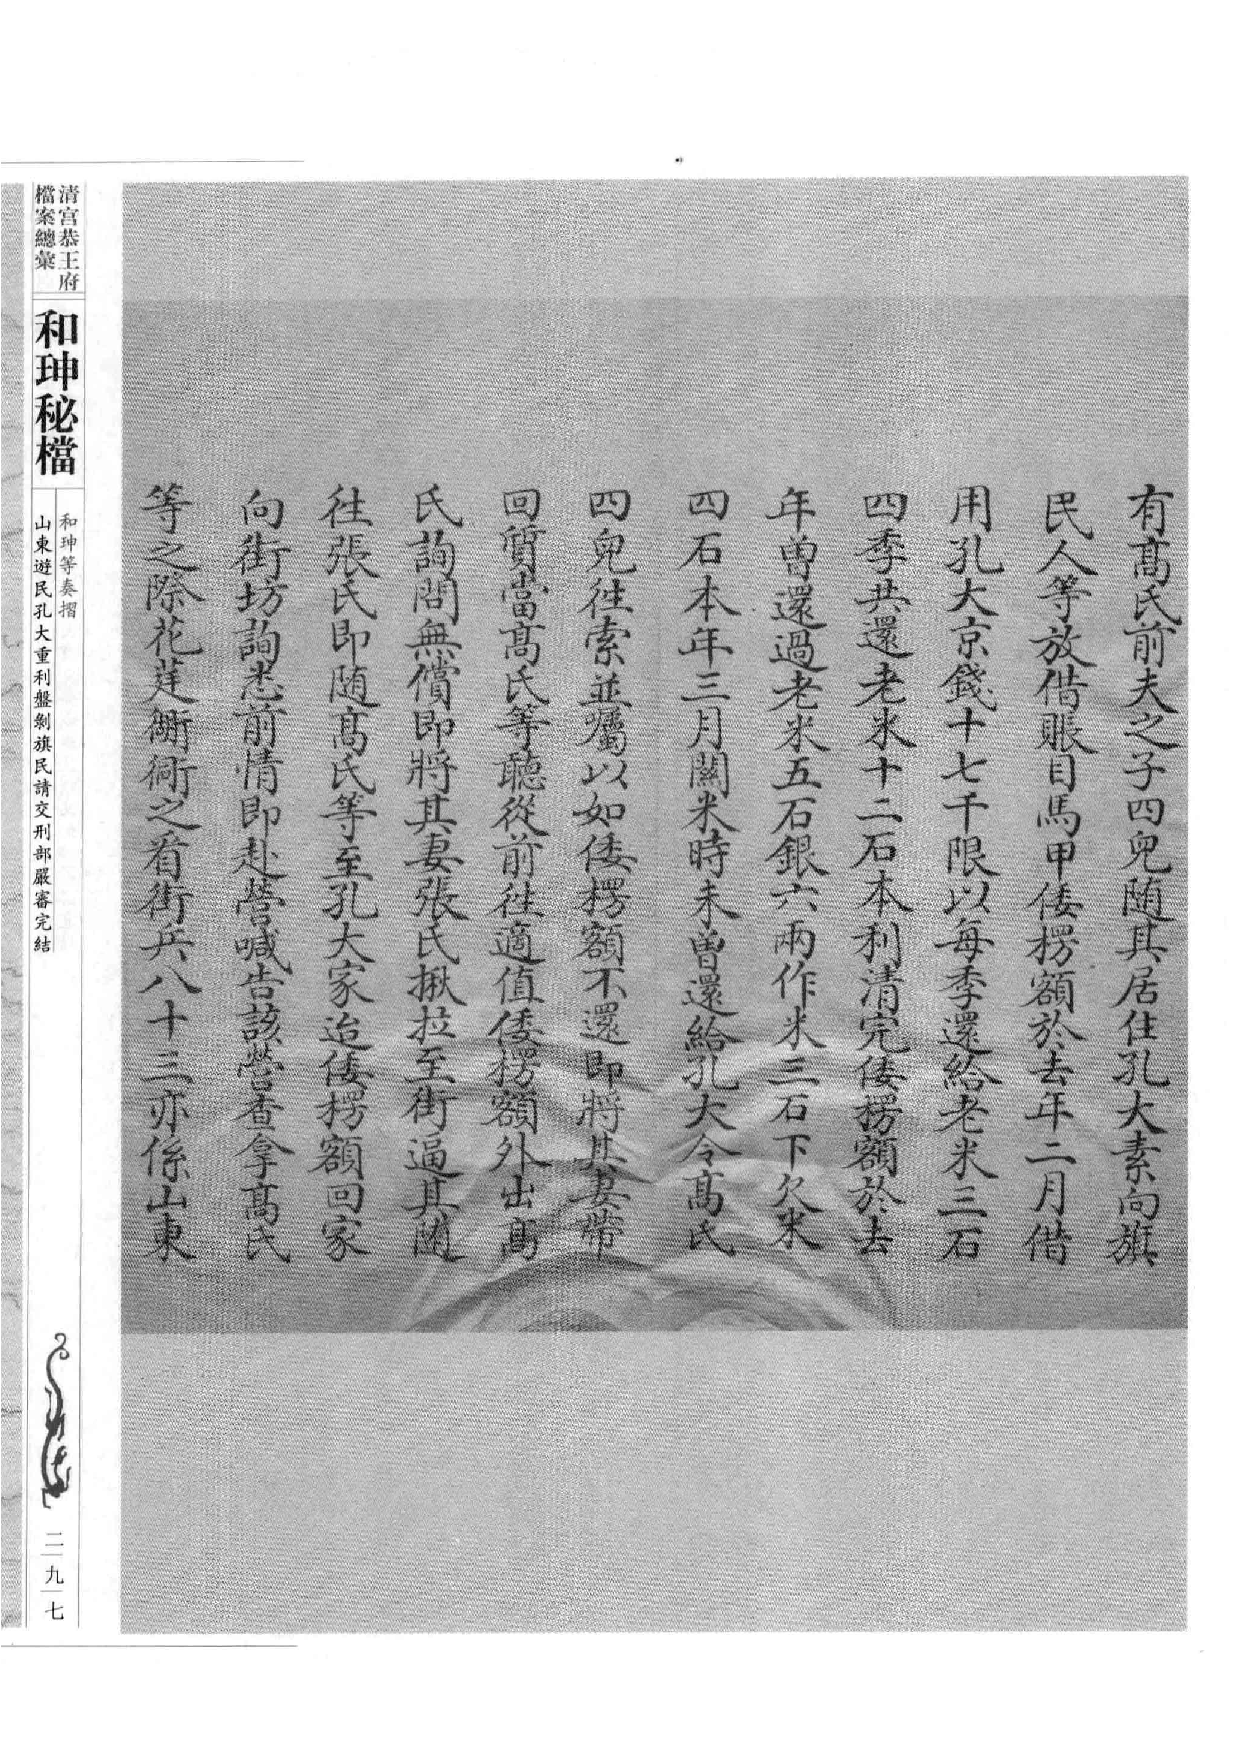 有高氏前夫之子四兒随其居住孔大素向旗
民人等放借賬目馬甲倭楞額於去年二月借
用孔大京錢十七千限以每季還給老米三石
四季共還老米十二石本利清完倭楞額於去
年曽還過老米五石銀六兩作米三石下欠米
四石本年三月關米時未曽還給孔大令高氏
四兒徃索並囑以如倭楞額不還即將其妻帶
回質當高氏等聽從前徃適值倭楞額外出高
氏詢問無償即將其妻張氏揪拉至街逼其随
徃張氏即随高氏等至孔大家迨倭楞額回家
向街坊詢悉前情即赴營喊告該營查拿高氏
等之際花莛衚衕之看街兵八十三亦係山東
清宫恭王府
檔案總彙
和珅秘檔
和珅等奏摺
山東遊民孔大重利盤剝旗民請交刑部嚴審完結
二九七